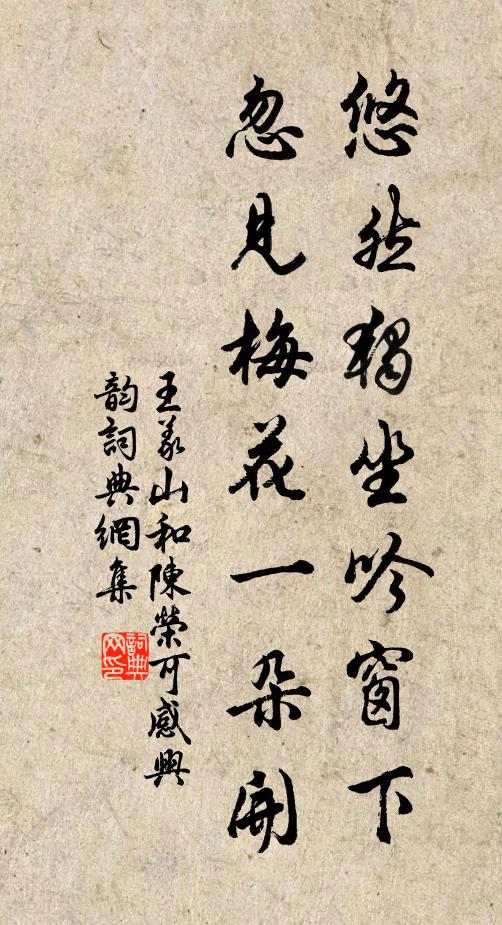 悠然獨坐吟窗下
忽見梅花一朵開
王義山和陳榮可感興
韵詞典網集
詞典网印